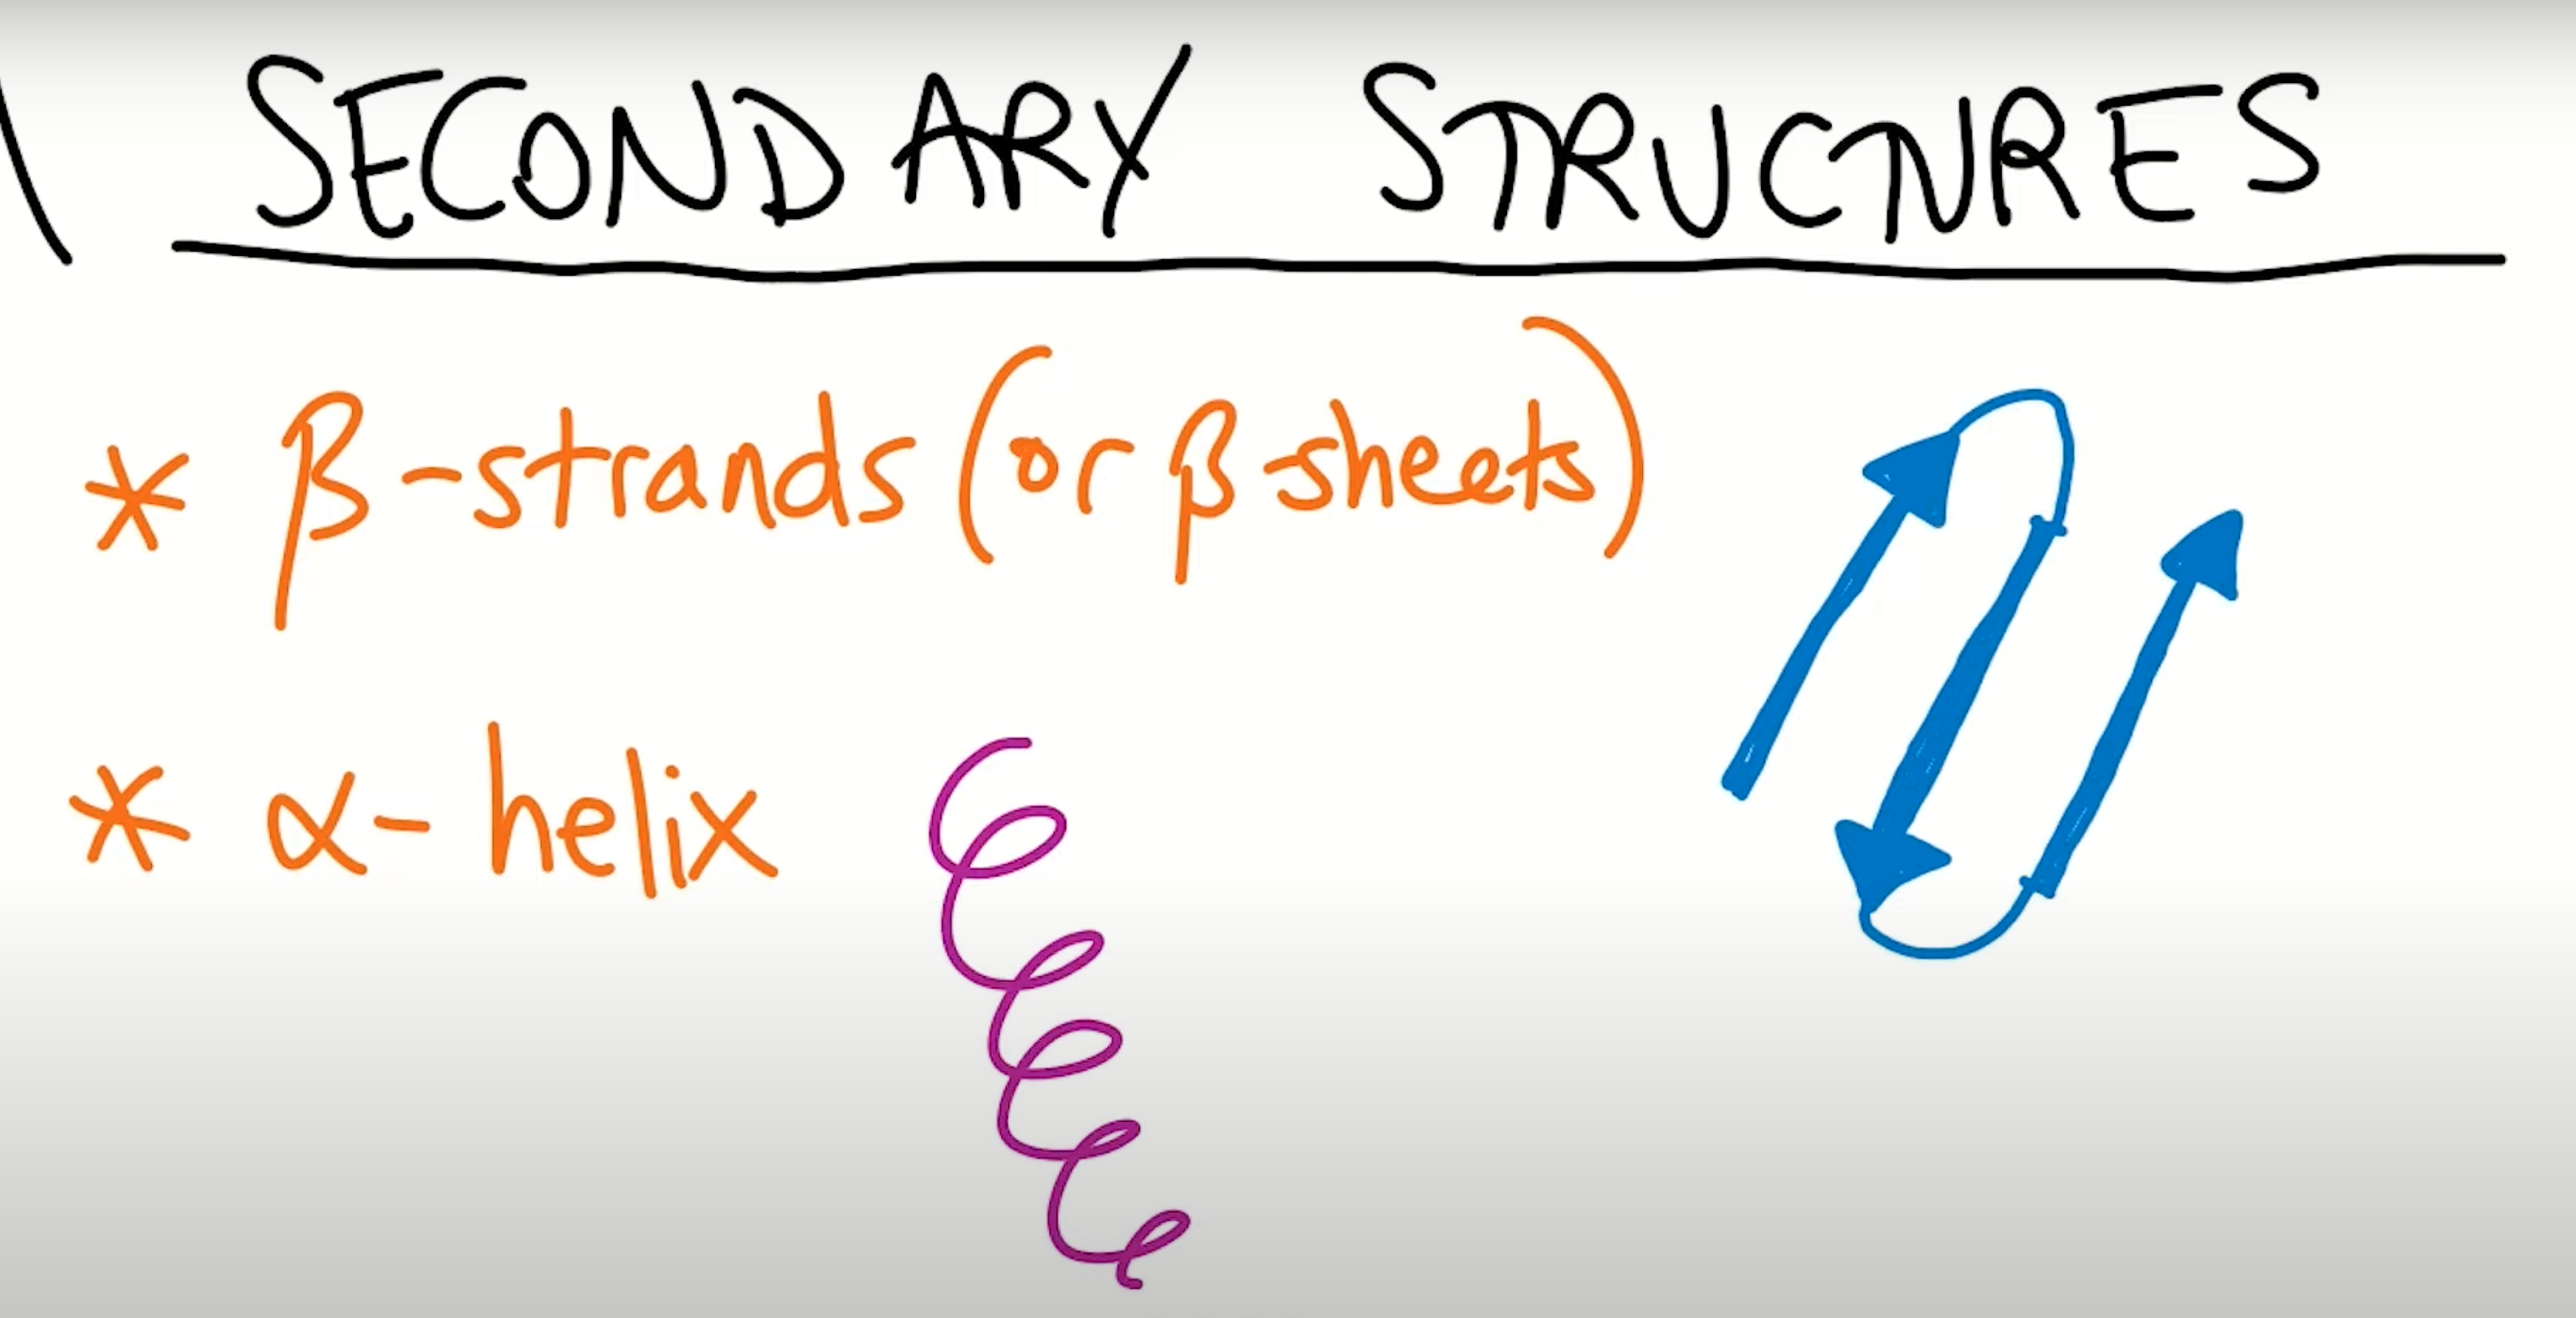 SECONDARY STRUCTURES
* β-strands (or β-sheets)
* α-helix